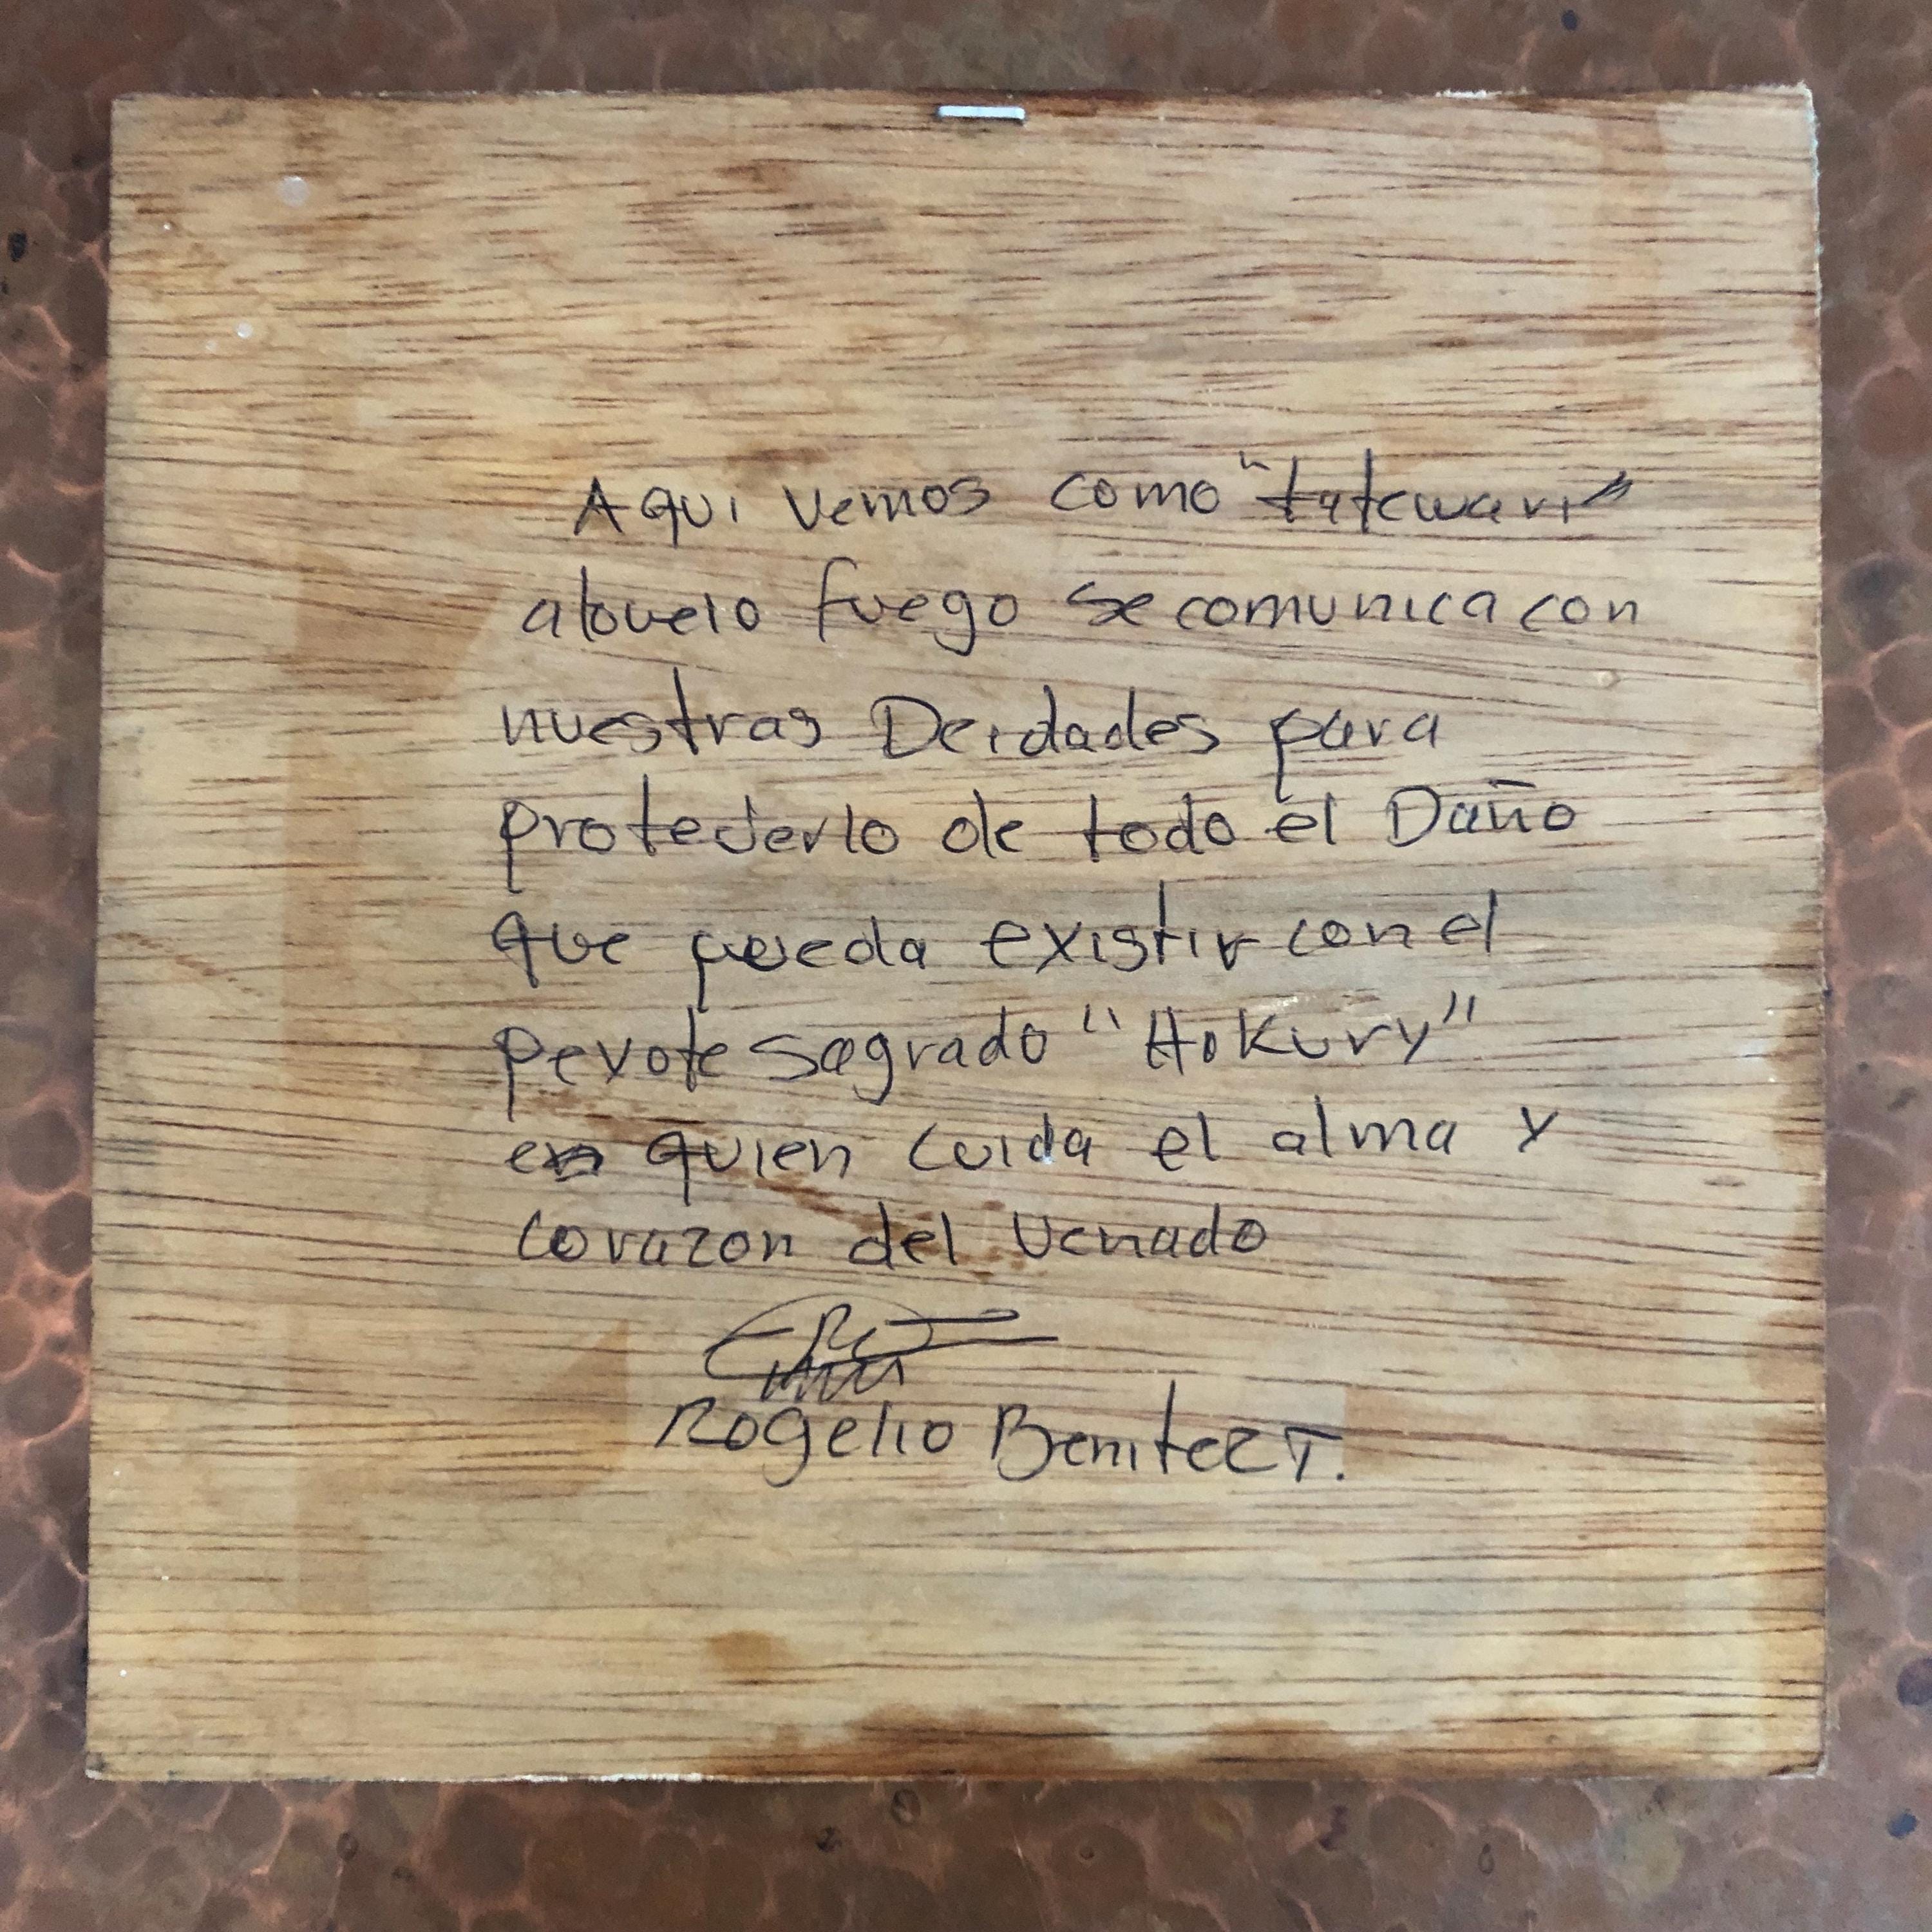 Aqui vemos como "tatewari"
abuelo fuego se comunica con
nuestras Deidades para
protejerlo de todo el Daño
que pueda existir con el
peyote sagrado "Hikury"
es quien cuida el alma y
corazon del venado
Rogelio Benitez T.